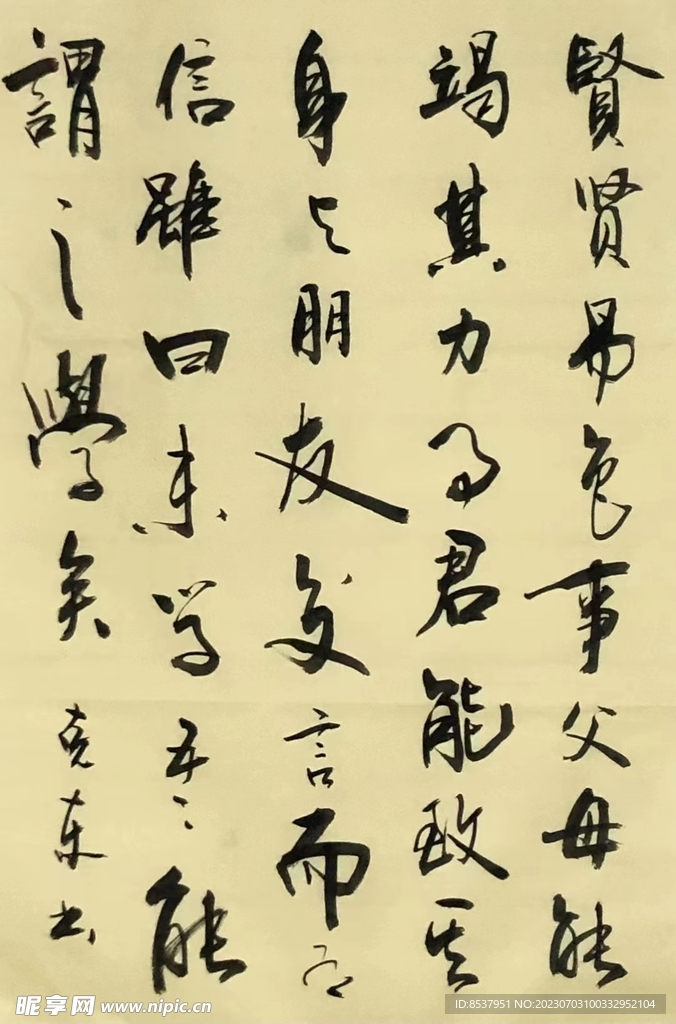 賢贤易色事父母能
竭其力事君能致其
身与朋友交言而有
信雖曰未学吾能
謂之學矣
克东书
昵享网 www.nipic.cn
ID:8537951 NO:20230703100332952104